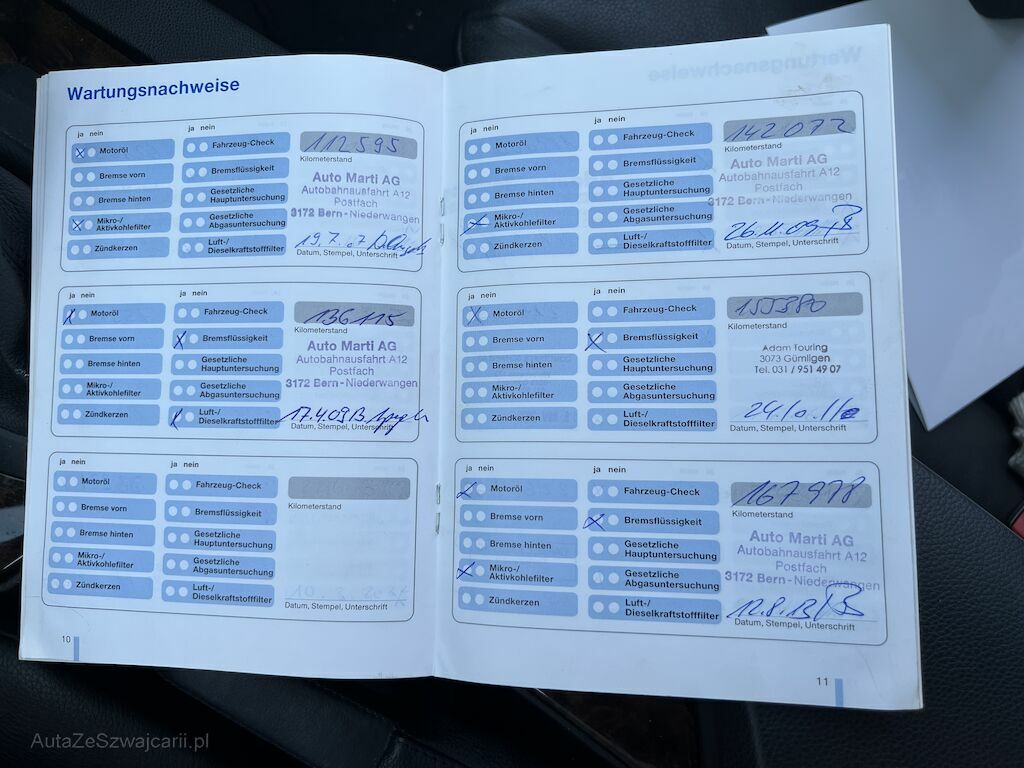 Wartungsnachweise
ja nein
ja nein
Motoröl
Fahrzeug-Check
112595
Kilometerstand
Bremse vorn
Bremsflüssigkeit
Auto Marti AG
Autobahnausfahrt A12
Postfach
3172 Bern - Niederwangen
Bremse hinten
Gesetzliche
Hauptuntersuchung
Mikro-/
Aktivkohlefilter
Gesetzliche
Abgasuntersuchung
Zündkerzen
Luft-/
Dieselkraftstofffilter
19.7.07
Datum, Stempel, Unterschrift
ja nein
ja nein
Motoröl
Fahrzeug-Check
136115
Kilometerstand
Bremse vorn
Bremsflüssigkeit
Auto Marti AG
Autobahnausfahrt A12
Postfach
3172 Bern - Niederwangen
Bremse hinten
Gesetzliche
Hauptuntersuchung
Mikro-/
Aktivkohlefilter
Gesetzliche
Abgasuntersuchung
Zündkerzen
Luft-/
Dieselkraftstofffilter
17.4.09
Datum, Stempel, Unterschrift
ja nein
ja nein
Motoröl
Fahrzeug-Check
Kilometerstand
Bremse vorn
Bremsflüssigkeit
Bremse hinten
Gesetzliche
Hauptuntersuchung
Mikro-/
Aktivkohlefilter
Gesetzliche
Abgasuntersuchung
Zündkerzen
Luft-/
Dieselkraftstofffilter
Datum, Stempel, Unterschrift
10
ja nein
ja nein
Motoröl
Fahrzeug-Check
142072
Kilometerstand
Bremse vorn
Bremsflüssigkeit
Auto Marti AG
Autobahnausfahrt A12
Postfach
3172 Bern - Niederwangen
Bremse hinten
Gesetzliche
Hauptuntersuchung
Mikro-/
Aktivkohlefilter
Gesetzliche
Abgasuntersuchung
Zündkerzen
Luft-/
Dieselkraftstofffilter
26.11.09
Datum, Stempel, Unterschrift
ja nein
ja nein
Motoröl
Fahrzeug-Check
155380
Kilometerstand
Bremse vorn
Bremsflüssigkeit
Adam Touring
3073 Gümligen
Tel. 031 / 951 49 07
Bremse hinten
Gesetzliche
Hauptuntersuchung
Mikro-/
Aktivkohlefilter
Gesetzliche
Abgasuntersuchung
Zündkerzen
Luft-/
Dieselkraftstofffilter
24.10.11
Datum, Stempel, Unterschrift
ja nein
ja nein
Motoröl
Fahrzeug-Check
167978
Kilometerstand
Bremse vorn
Bremsflüssigkeit
Auto Marti AG
Autobahnausfahrt A12
Postfach
3172 Bern - Niederwangen
Bremse hinten
Gesetzliche
Hauptuntersuchung
Mikro-/
Aktivkohlefilter
Gesetzliche
Abgasuntersuchung
Zündkerzen
Luft-/
Dieselkraftstofffilter
12.8.13
Datum, Stempel, Unterschrift
11
AutaZeSzwajcarii.pl